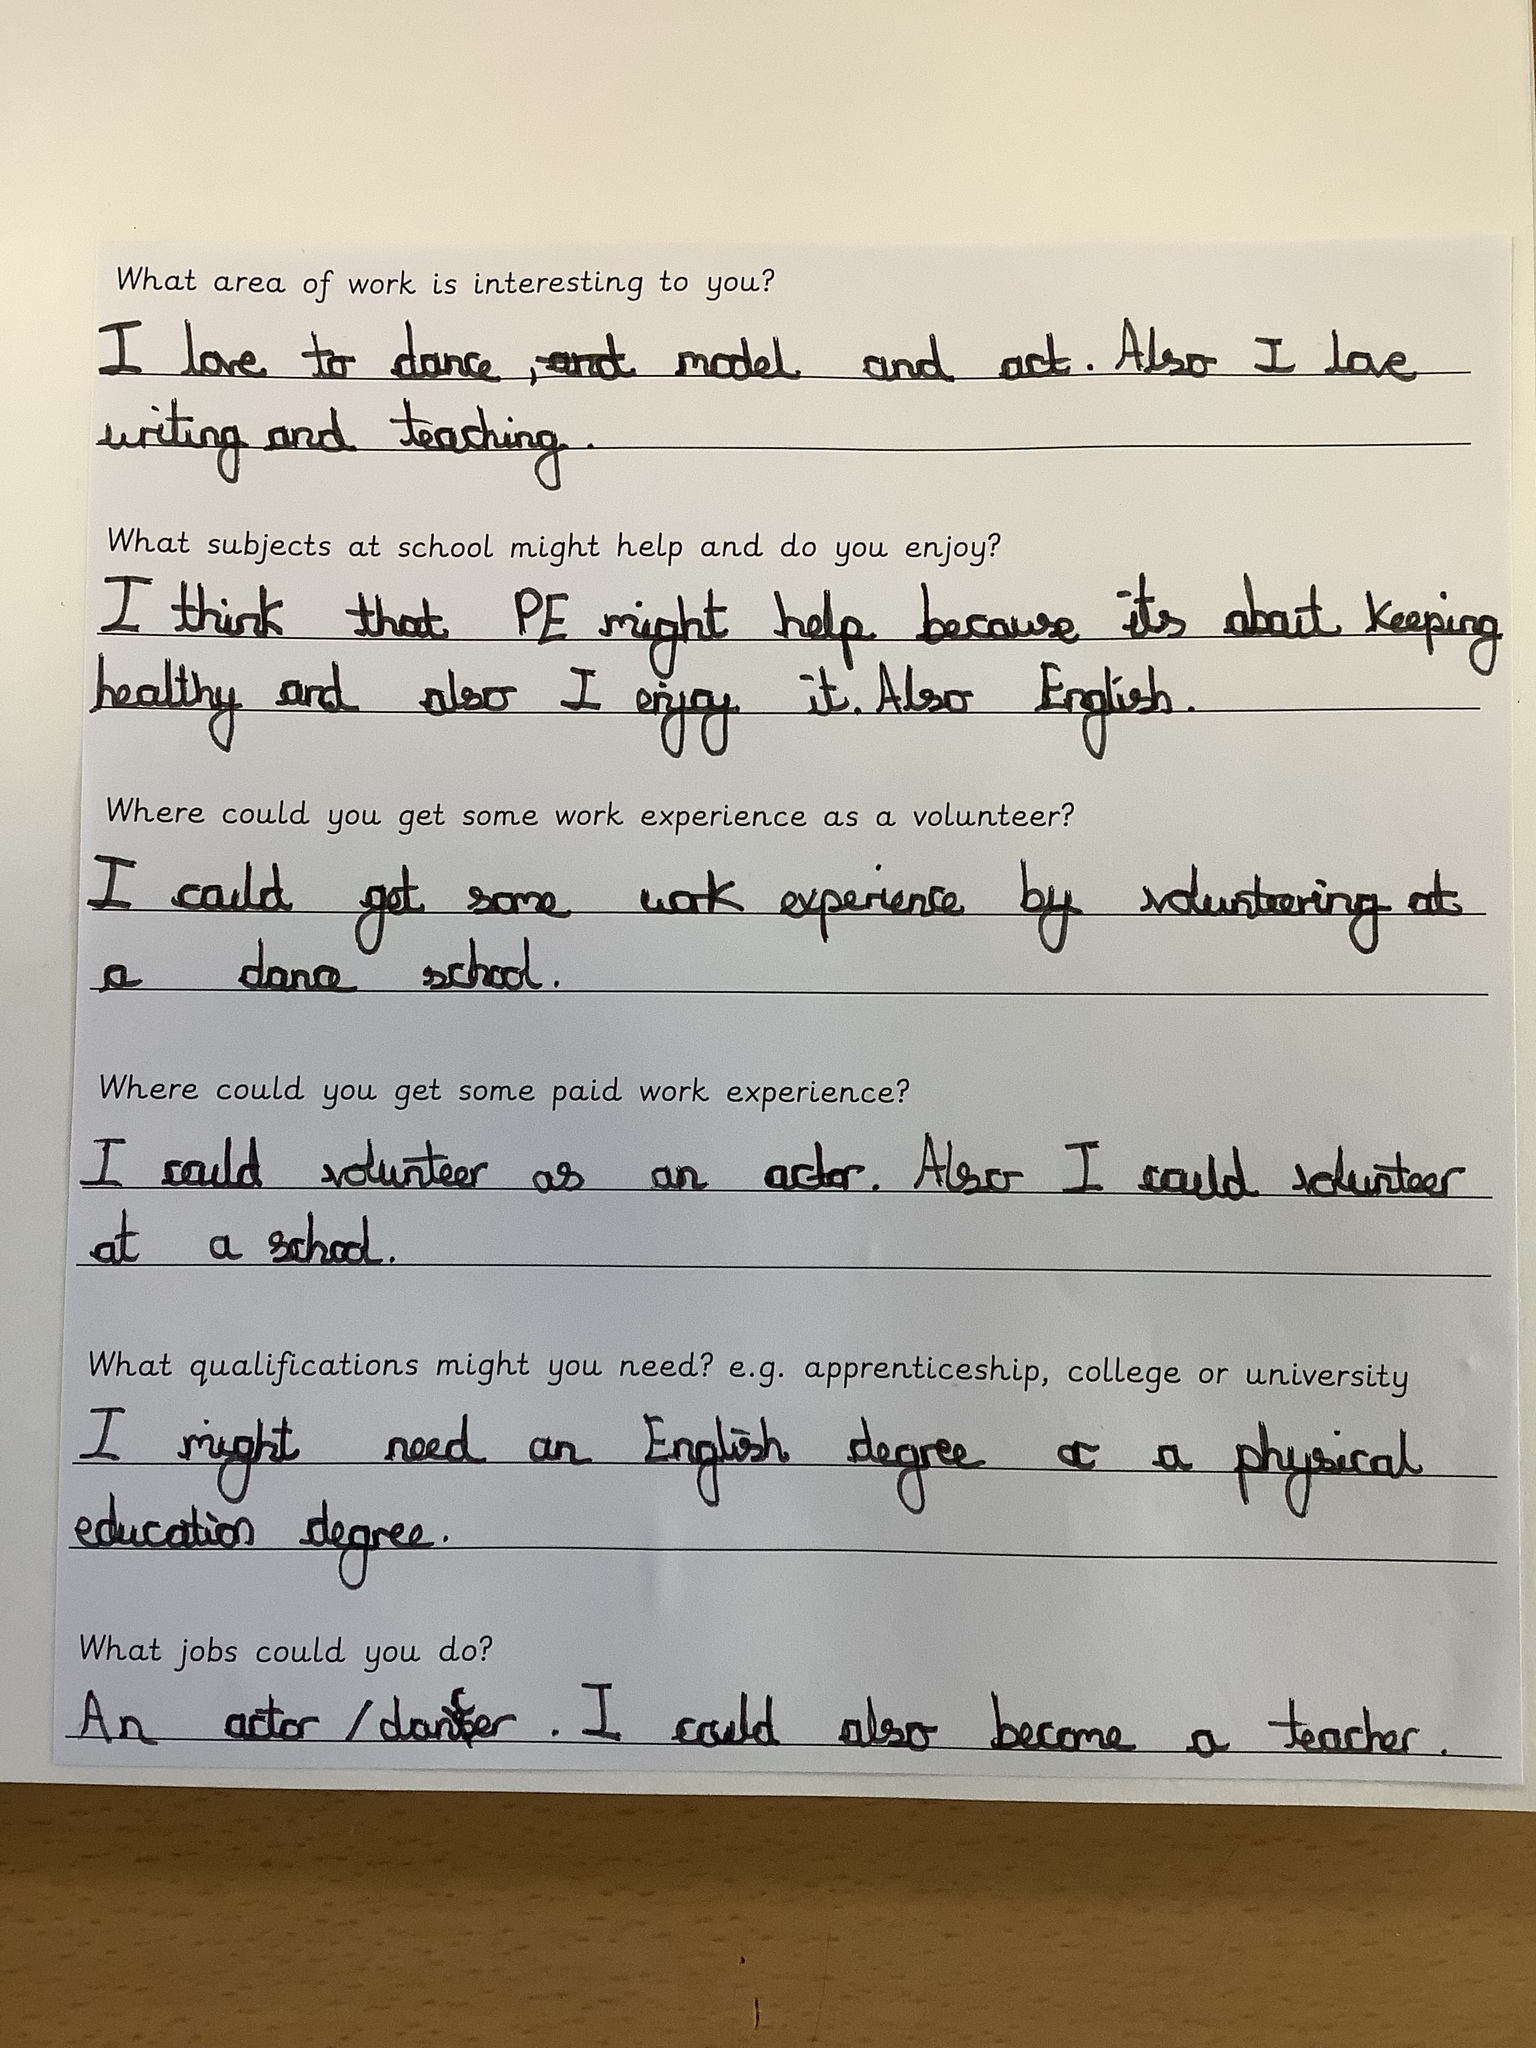 What area of work is interesting to you?
I love to dance, and model and act. Also I love
writing and teaching.
What subjects at school might help and do you enjoy?
I think that PE might help because its about keeping
healthy and also I enjoy it. Also English.
Where could you get some work experience as a volunteer?
I could get some work experience by volunteering at
a dance school.
Where could you get some paid work experience?
I could volunteer as an actor. Also I could volunteer
at a school.
What qualifications might you need? e.g. apprenticeship, college or university
I might need an English degree or a physical
education degree.
What jobs could you do?
An actor / dancer. I could also become a teacher.